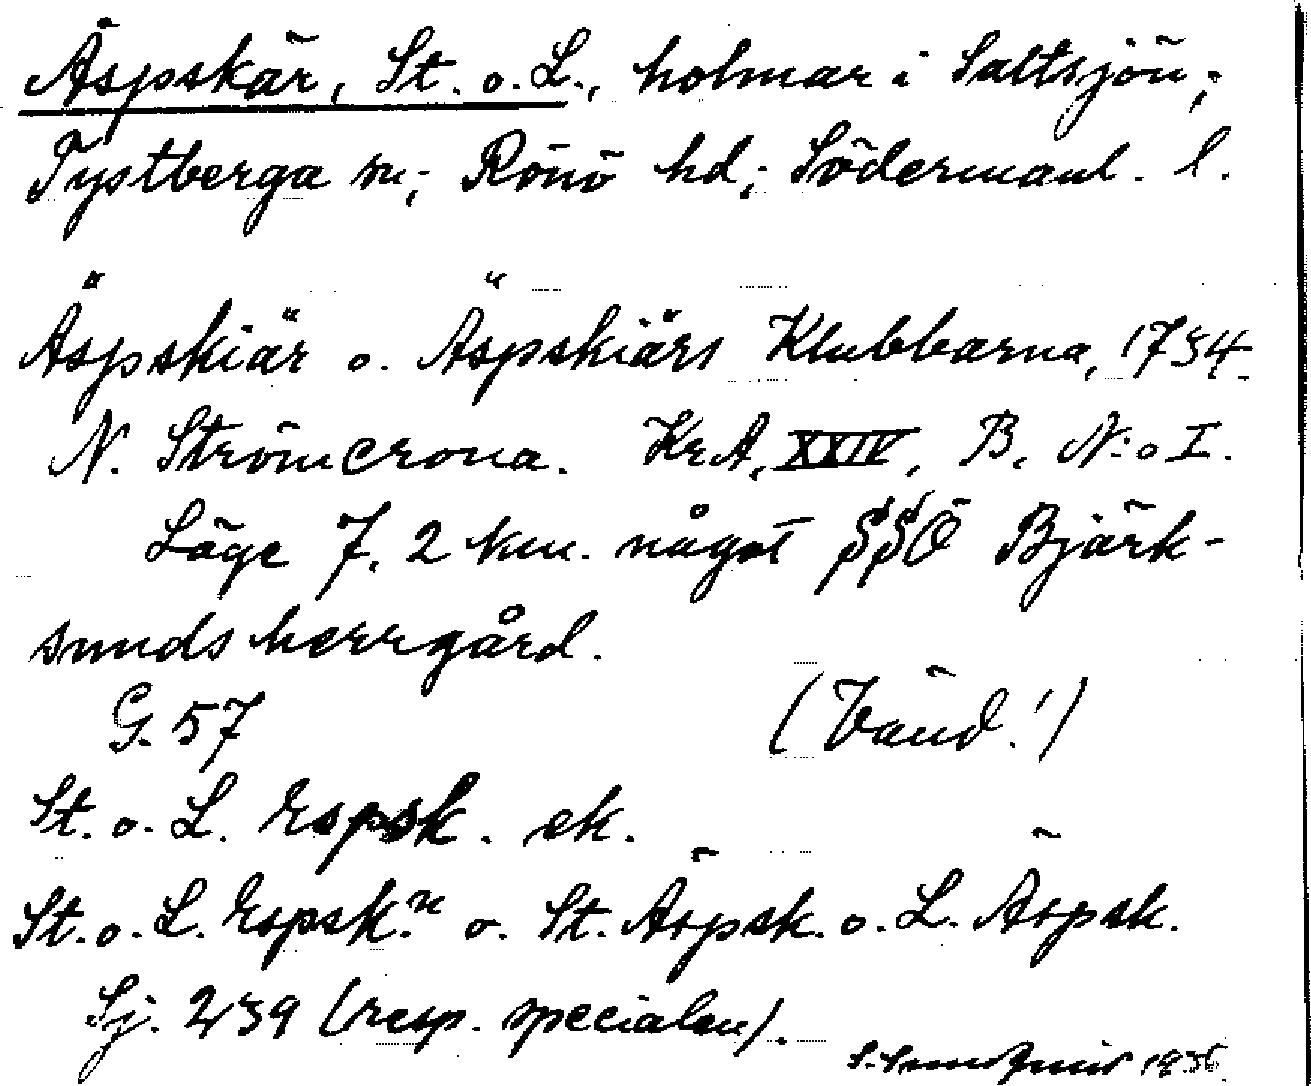 Äspskär, St. o. L., holmar i Saltsjön;
Tystberga sn; Rönö hd; Södermanl. l.
Äspskiär o. Äspskiärs Klubbarna, 1734.
N. Strömcrona. Kr.A. XXIV, B, N:o I.
Läge 7,2 km. något SSÖ Björk-
sunds herrgård.
G. 57 (Vänd!)
St. o. L. Espsk. ek.
St. o. L. Espsk:n o. St. Äspsk. o. L. Äspsk.
Sj. 239 (resp. specialen).